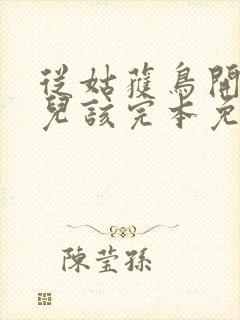 從姑獲鳥開
兒該完本免
陳瑩孫